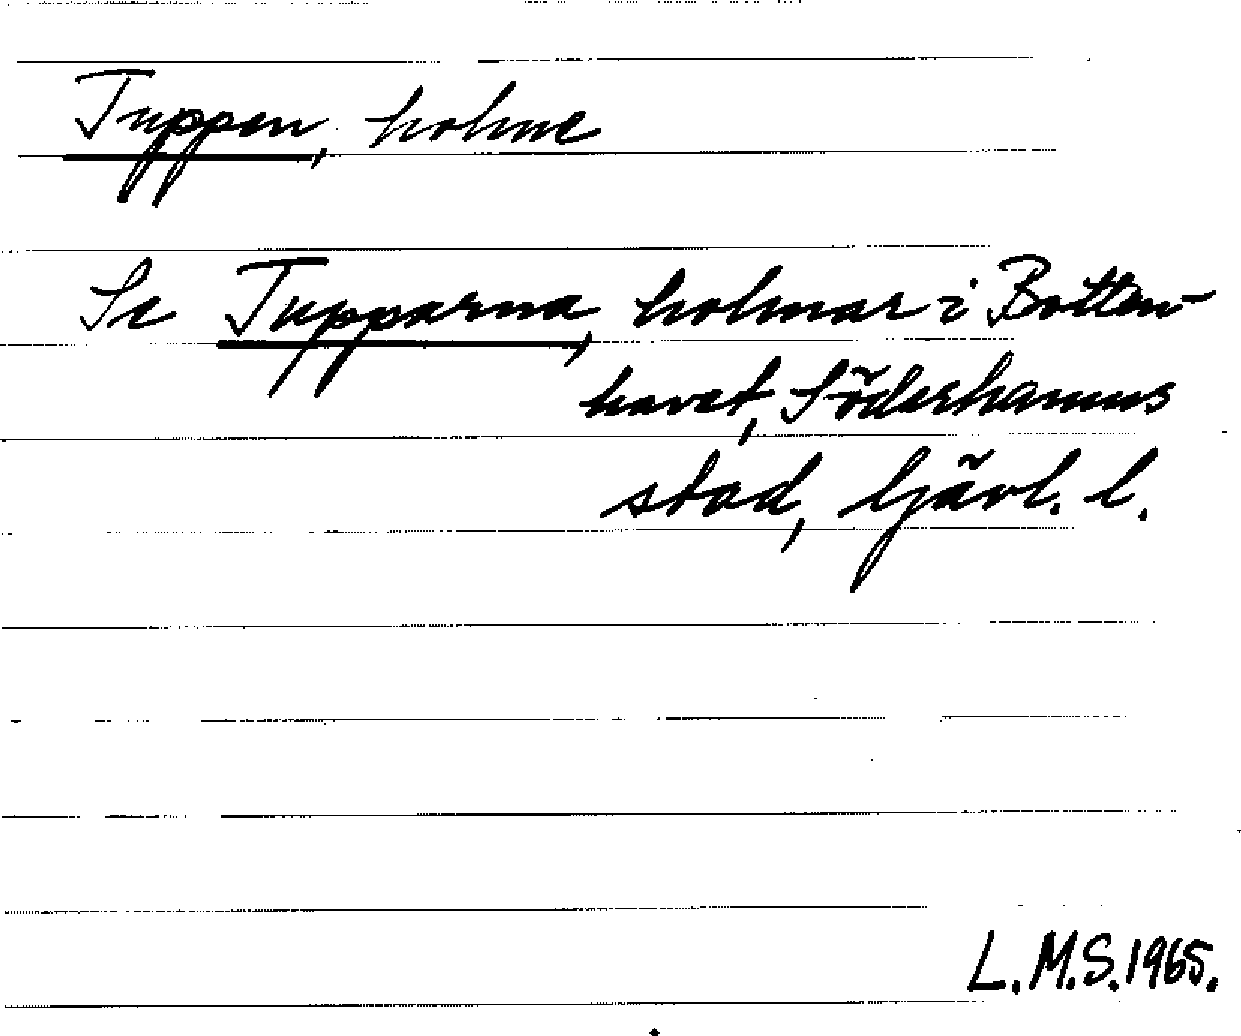 Tuppen, holme
Se Tupparna, holmar i Botten-
havet, Söderhamns
stad, Gävl. l.
L.M.S. 1965.